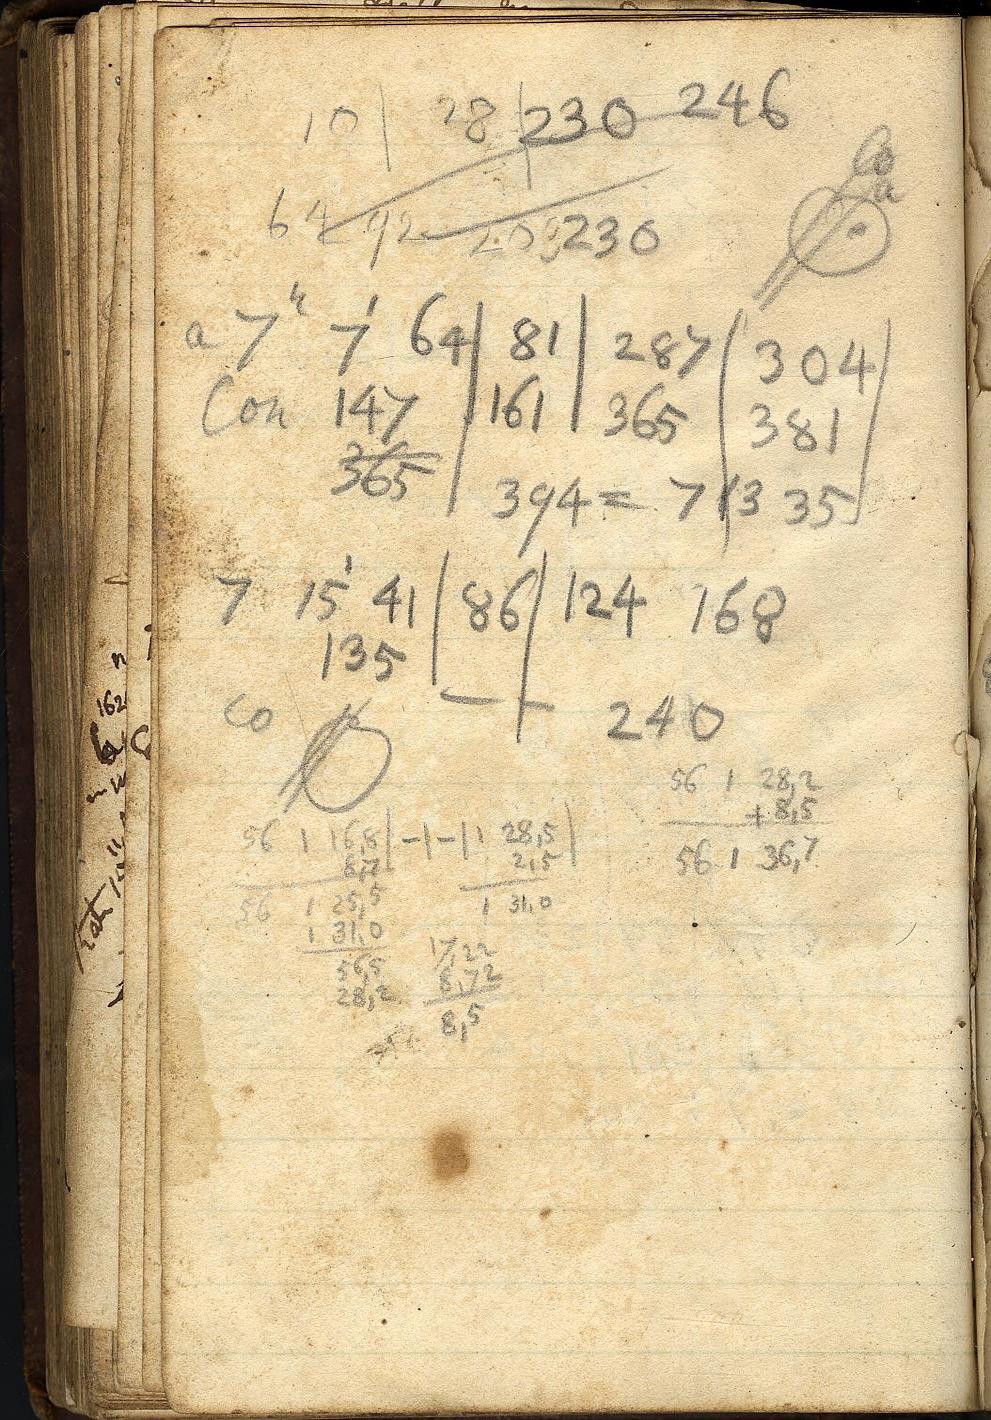 10 | 28 | 230 246
Co
a
64 92 209 230
a 7h 7' 64 | 81 | 287 | 304 |
Con 147 | 161 | 365 | 381
365
394 = 7 13 35
7 15' 41 | 86 | 124 168
135
Co — — 240
56 1 28,2
+ 8,5
56 1 36,7
56 1 16,8 | -1-| 1 28,5 |
8,7 2,5
56 1 25,5 1 31,0
1 31,0
56,5 17,22
28,2 8,72
8,5
162